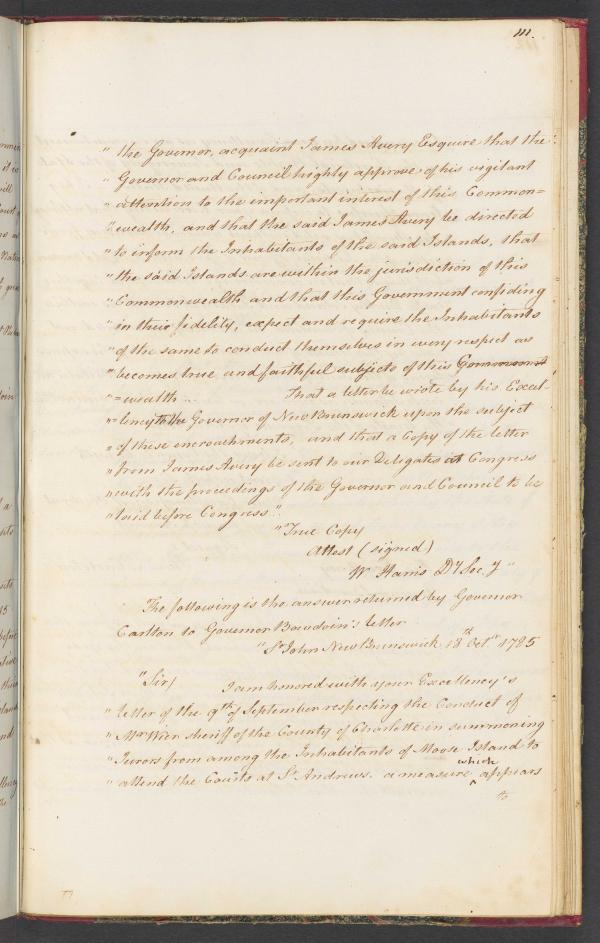 111.
" the Governor, acquaint James Avery Esquire that the
" Governor and Council highly approve of his vigilant
" attention to the important interest of this Common=
" wealth, and that the said James Avery be directed
" to inform the Inhabitants of the said Islands, that
" the said Islands are within the jurisdiction of this
" Commonwealth and that this Government confiding
" in their fidelity, expect and require the Inhabitants
" of the same to conduct themselves in every respect as
" becomes true and faithful subjects of this Common
"=wealth... That a letter be wrote by his Excel-
"=lency to the Governor of New Brunswick upon the subject
" of these encroachments, and that a Copy of the letter
" from James Avery be sent to our Delegates at Congress
" with the proceedings of the Governor and Council to be
" laid before Congress."
"True Copy
Attest (signed)
W Harris Dy Secy"
The following is the answer returned by Governor
Carlton to Governor Bowdoin's letter
"St John New Brunswick 18th Octr 1785
"Sir/ I am honored with your Excellency's
" letter of the 9th of September respecting the Conduct of
" Mr Wier sheriff of the County of Charlotte in summoning
" Jurors from among the Inhabitants of Moose Island to
" attend the Courts at St Andrews. a measure which appears
to